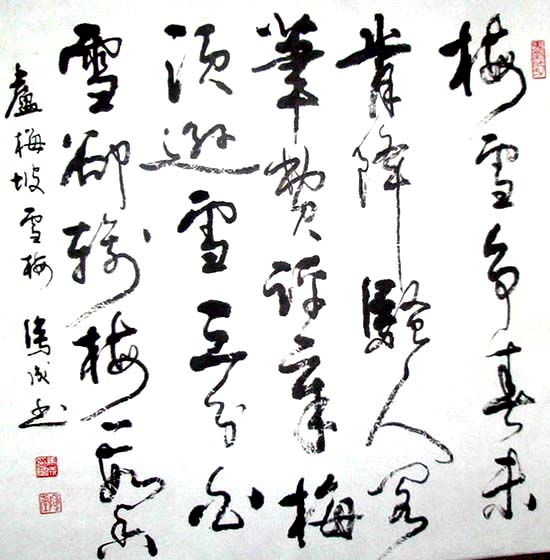 梅雪争春未
肯降騷人阁
筆費評章梅
须遜雪三分白
雪卻輸梅一段香
盧梅坡雪梅 成书